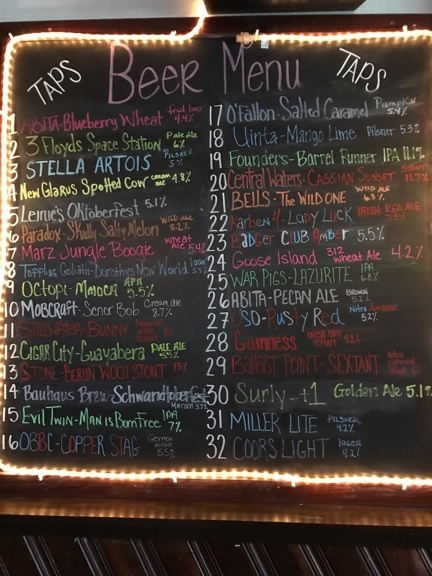 TAPS Beer Menu TAPS
1 ABITA-Blueberry Wheat fruit beer 4.4%
2 3 Floyds Space Station Pale Ale 6%
3 STELLA ARTOIS PILSNER 5%
4 New Glarus Spotted Cow cream ale 4.8%
5 Leinie's Oktoberfest 5.1%
6 Paradox-Skully Salty Melon WILD ALE 8.2%
7 Marz Jungle Boogie Wheat Ale 5.4%
8 Toppling Goliath-Dorothys New World 5.5%
9 Octopi-Mmoca APA 5.5%
10 MOBCRAFT-Señor Bob Cream ale 8.7%
11 STILLWATER-BUNNY
12 CIGAR City-Guayabera PALE ALE 5.5%
13 STONE-BERLIN WOOT STOUT 13%
14 Bauhaus Brew-Schwandtoberfest Marzen 5.7%
15 EVIL TWIN-MAN is BORN FREE IPA 7%
16 OBBC-COPPER STAG 5.5%
17 O'Fallon-Salted Caramel Pumpkin 5.4%
18 Uinta-Mango Lime Pilsner 5.3%
19 Founders-Barrel Runner IPA 11.1%
20 Central Waters-CASSIAN SUNSET STOUT 11.7%
21 BELLS-The WILD ONE WILD ALE 6.5%
22 Karben 4-LADY LUCK IRISH RED ALE
23 BADGER CLUB AMBER 5.5%
24 GOOSE ISLAND 312 Wheat Ale 4.2%
25 WAR PIGS-LAZURITE IPA
26 ABITA-PECAN ALE BROWN 5.2%
27 OSO-Rusty Red Nitro Amber 5.2%
28 Guinness IRISH DRY STOUT
29 Ballast POINT-SEXTANT
30 Surly-+1 Golden Ale 5.1%
31 MILLER LITE PILSNER 4.2%
32 COORS LIGHT lager 4.2%